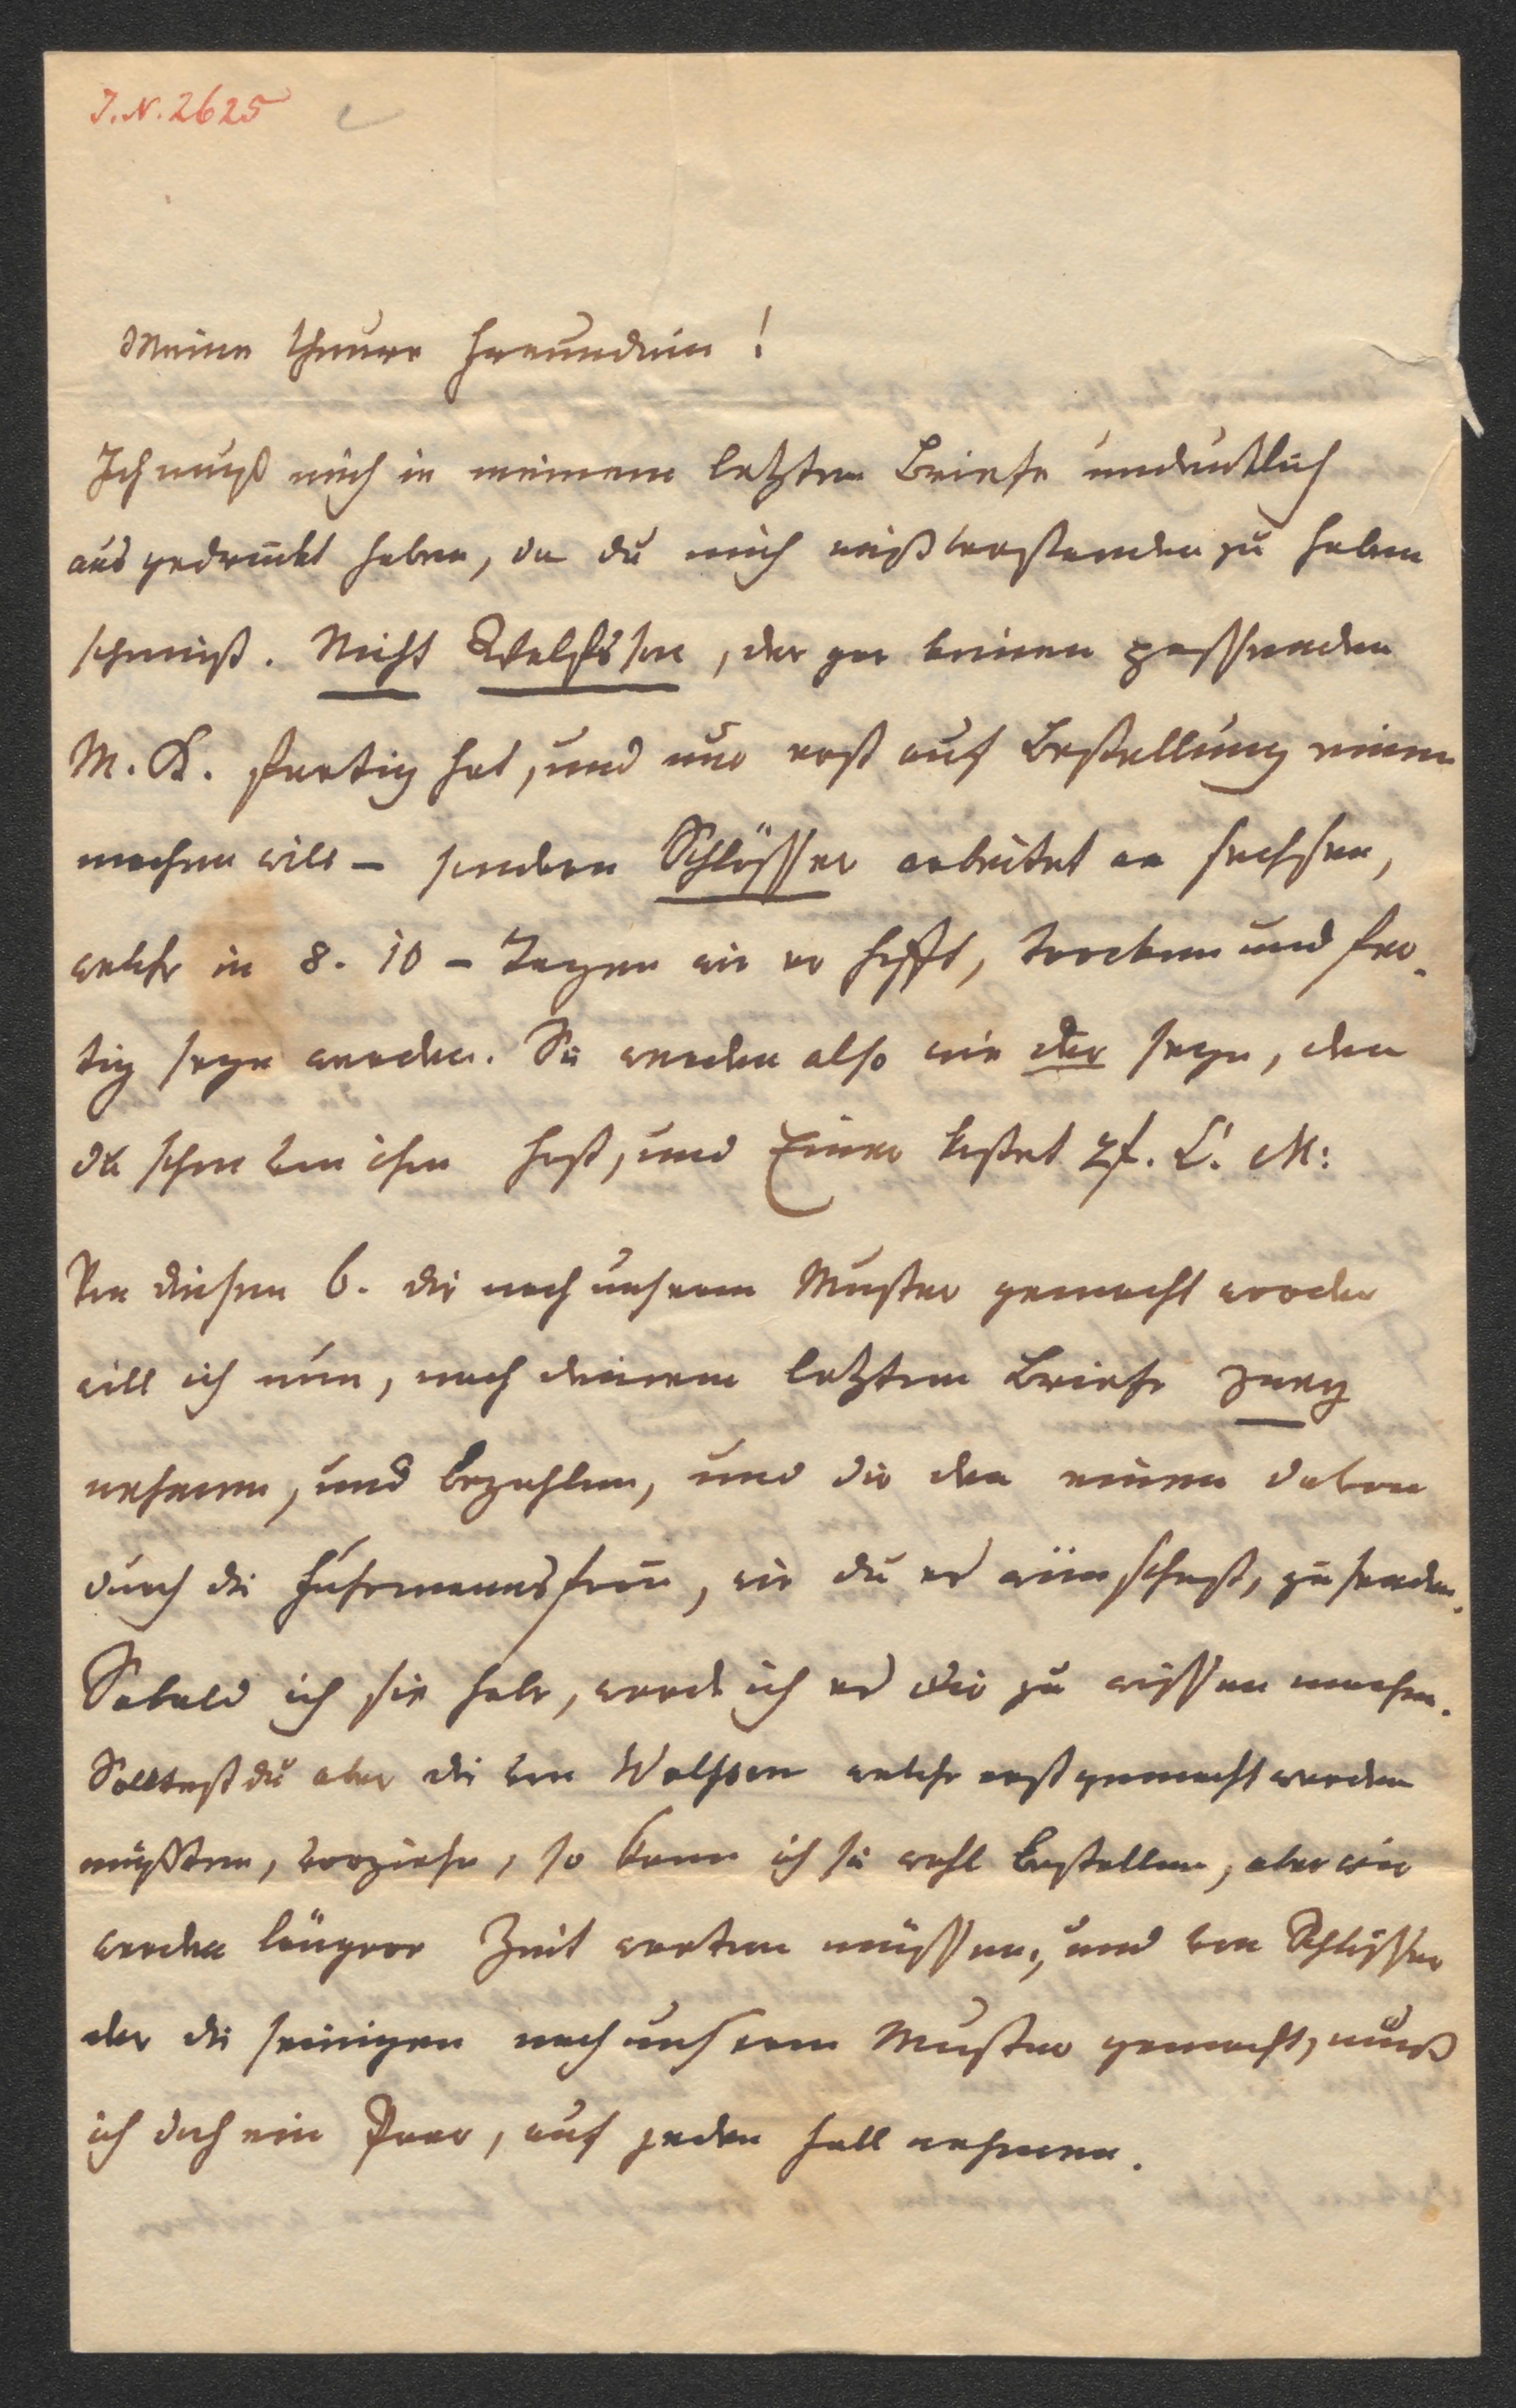 J.N. 2625
Meine theure Freundin!
Ich muß mich in meinem letzten Briefe undeutlich
ausgedrückt haben, da du mich mißverstanden zu haben
scheinst. Nicht Wolfson, der gar keinen passenden
M. K. fertig hat, und nur erst auf Bestellung einen
machen will – sondern Schlösser arbeitet an sechsen,
welche in 8. 10 – Tagen wie er hofft, trocken und fer-
tig seyn werden. Sie werden also wie der seyn, den
du schon von ihm hast, und Einer kostet 2f. C. M:
Von diesen 6. die nach unserm Muster gemacht worden
will ich nun, nach deinem letzten Briefe zwey
nehmen, und bezahlen, und dir den einen davon
durch die Fuhrmannsfrau, wie du es wünschest, zusenden.
Sobald ich sie habe, werde ich es dir zu wissen machen.
Solltest du aber die von Wolfson welche erst gemacht werden
müßten, vorziehe, so kann ich sie wohl bestellen, aber wir
werden längere Zeit warten müssen, und von Schlösser
der die seinigen nach unserm Muster gemacht, muß
ich doch ein Paar, auf jeden Fall nehmen.